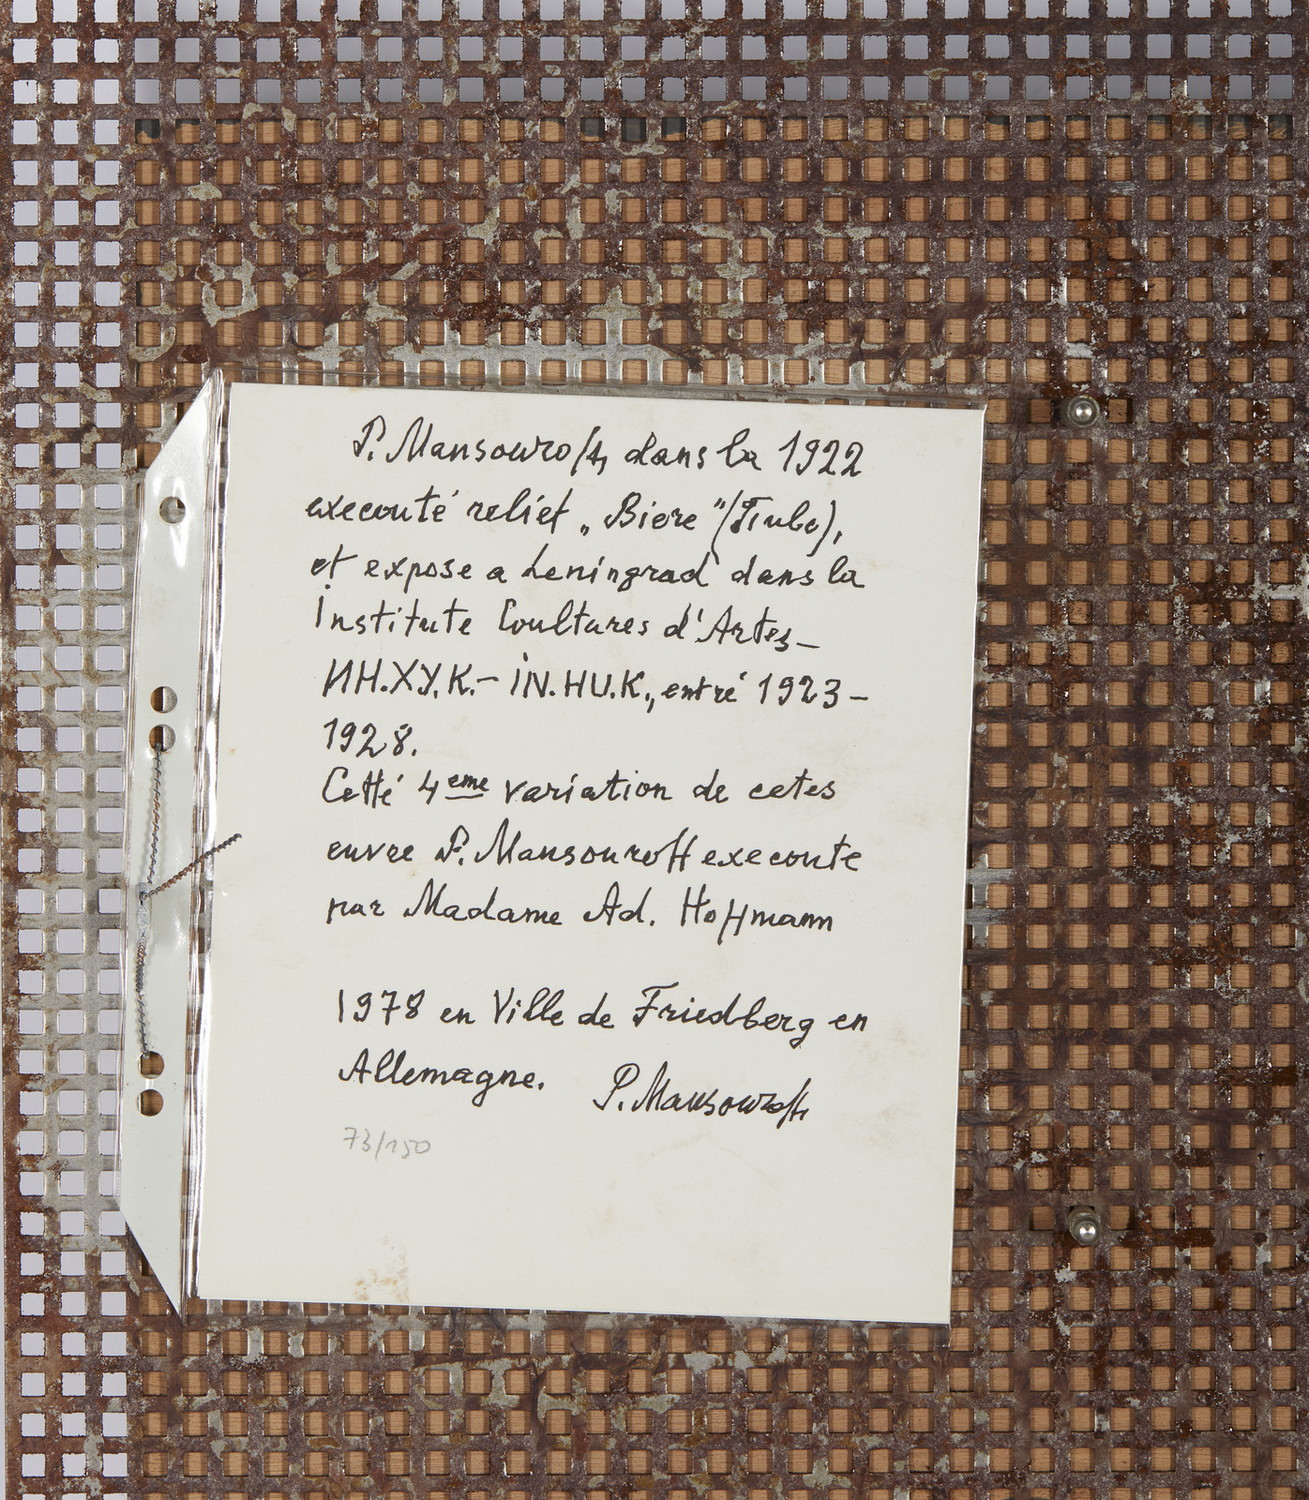 P. Mansouroff, dans la 1922
executé relief „Biere" (Tiube),
et expose a Leningrad dans la
Institute Coultures d'Artes–
ИН.ХУ.К.– IN.HU.K., entré 1923–
1928.
Cetté 4eme variation de cetes
euvre P. Mansouroff execoute
par Madame Ad. Hoffmann
1978 en Ville de Friedberg en
Allemagne. P. Mansouroff
73/150